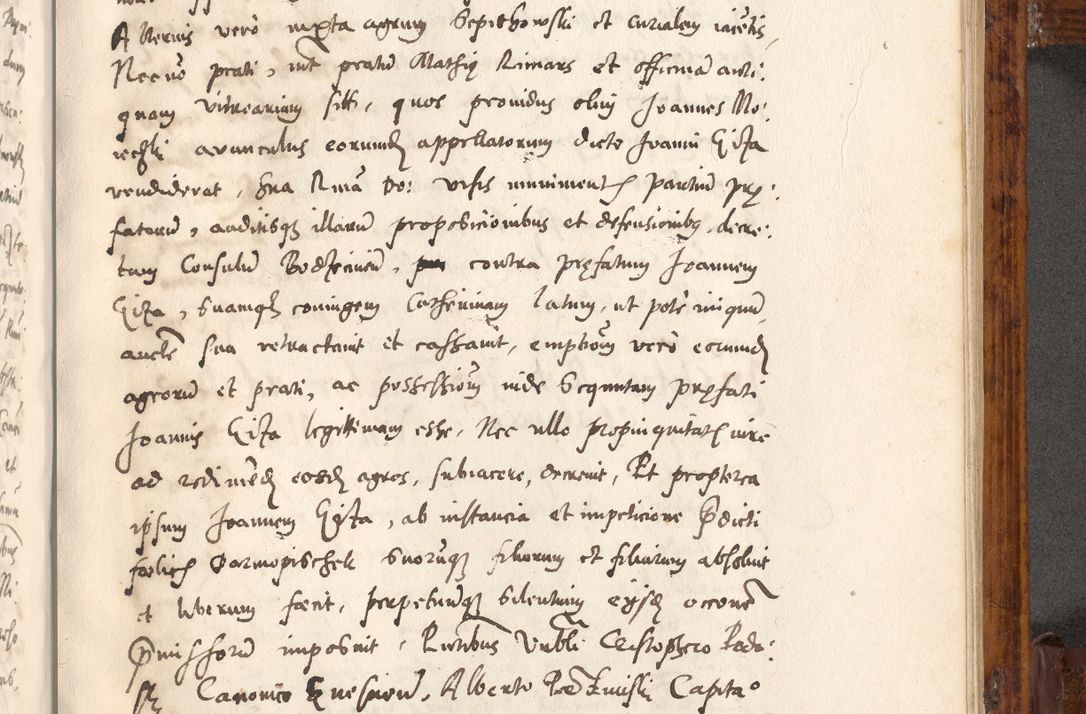 Alterius verò iuxta agrum Sepichowski et curialem iacentis,
Nec nō prati, int pratū Mathię Rimars et officinā anti:
quam vitrearium siti, quos providus olim Joannes Mo:
avunculus eorumdē appellatorum dicto Joanni Giza
vendiderat, Sua Rma Do: visis munimentis partium prę:
fatarū, auditisqz illarū proposicionibus et defensionibus, decre:
tum Consulū Bodzecinēn, contra pręfatum Joannem
Giza, Suamqz coniugem Catherinam latum, ut pote iniquū,
aucte sua retractavit et cassavit, emptiōm verò eorumdē
agrorū et prati, ac possessiōm inde Sequutam pręfati
Joannis Giza legittimam esse, Nec ullo propinquitatis iure
ad redimendū eosdē agros, subiacere, decrevit, Et propterea
ipsum Joannem Giza, ab instancia et impeticione p̄dicti
fœlicis Darmopischek Suorumqz filiorum et filiarum absolvit
et liberum fecit, perpetuumqz Silentium eisdē occōne
p̄missorū imposuit, Pntibus Vnbli Cristophero Rado:
Canonico Gnesnēn, Alberto Capita°